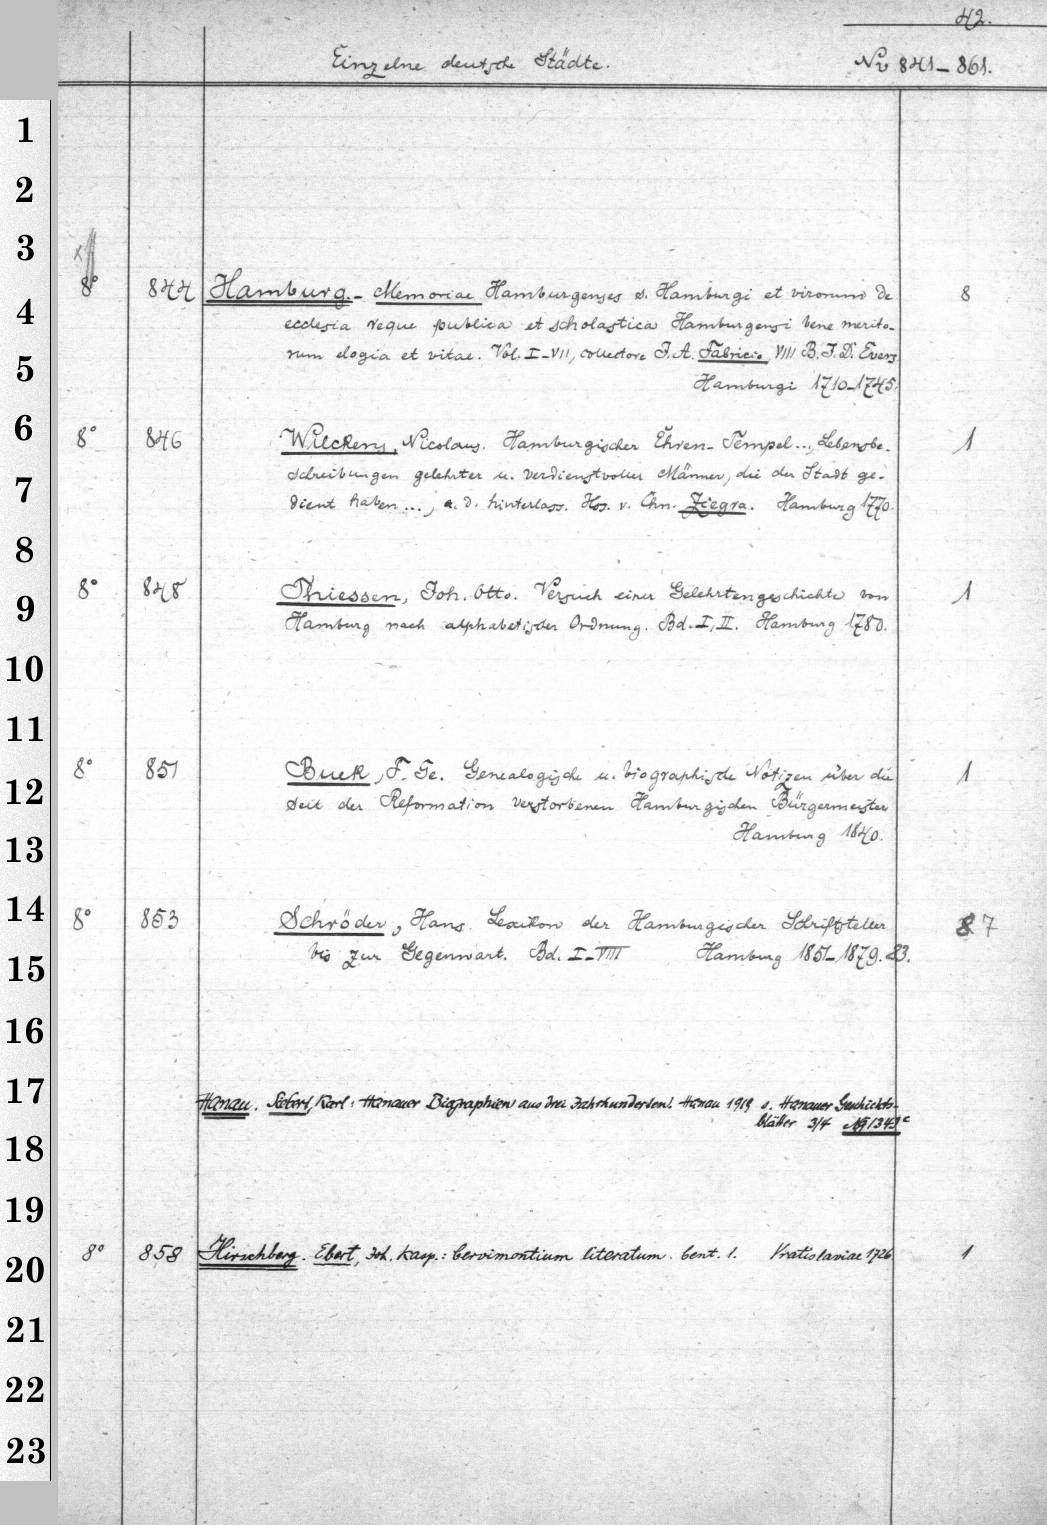 42.
Einzelne deutsche Städte. Nv 841-861.
1
2
3
8° 844 Hamburg.- Memoriae Hamburgenses s. Hamburgi et virorum de 8
4
ecclesia reque publica et scholastica Hamburgensi bene merito-
5
rum elogia et vitae. Vol. I-VII, collectore J. A. Fabricio, VIII B. J. D. Evers
Hamburgi 1710-1745.
6
8° 846 Wilckens, Nicolaus. Hamburgischer Ehren-Tempel..., Lebensbe- 1
schreibungen gelehrter u. verdienstvoller Männer, die der Stadt ge-
7
dient haben ..., a. d. hinterlass. Hss. v. Chn. Ziegra. Hamburg 1770.
8
8° 848 Thiessen, Joh. Otto. Versuch einer Gelehrtengeschichte von 1
9
Hamburg nach alphabetischer Ordnung. Bd. I, II. Hamburg 1780.
10
11
8° 851 Buek, F. Ge. Genealogische u. biographische Notizen über die 1
12
seit der Reformation verstorbenen Hamburgischen Bürgermeister
Hamburg 1840.
13
14
8° 853 Schröder, Hans. Lexikon der Hamburgischer Schriftsteller 8 7
bis zur Gegenwart. Bd. I-VIII Hamburg 1851-1879. 83.
15
16
17
Hanau. Siebert, Karl: Hanauer Biographien aus drei Jahrhunderten. Hanau 1919 s. Hanauer Geschichts-
blätter 3/4
18
19
8° 858 Hirschberg. Ebert, Joh. Kasp.: Cervimontium literatum. Cent. 1. Vratislaviae 1726 1
20
21
22
23